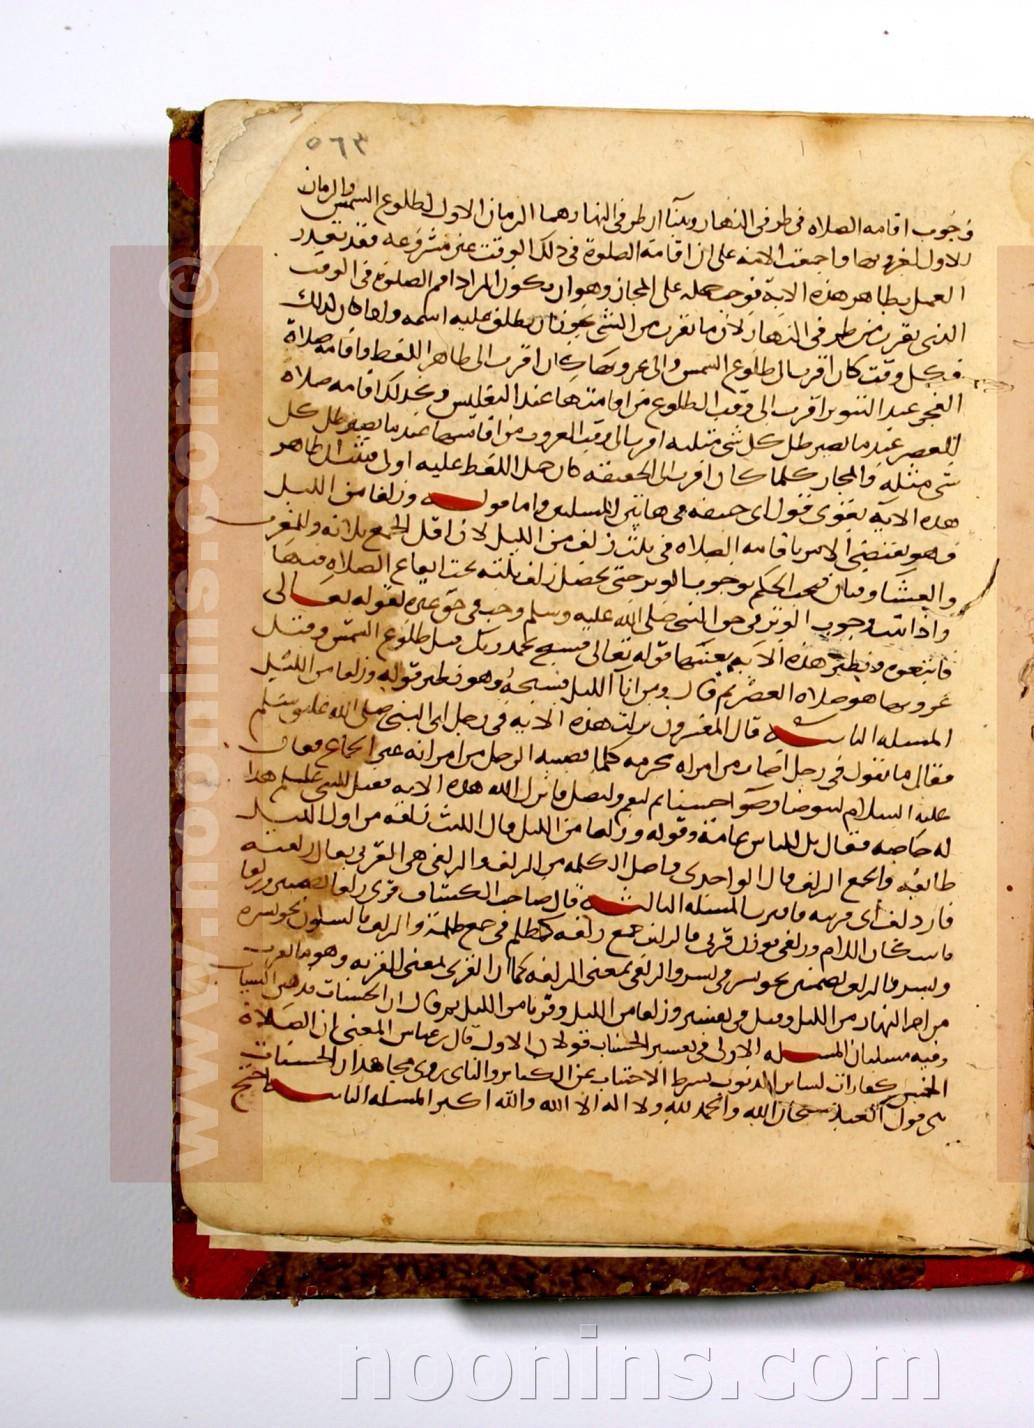 ٥٦٣
وجوب اقامه الصلاه فى طرفى النهار وبينا ان طرفى النهار هما الزمان الاول لطلوع الشمس والزمان
الاول لغروبها واجمعت الامه على ان اقامة الصلوة فى ذلك الوقت غير مشروعه فقد تعذر
العمل بظاهر هذه الاية فوجب حمله على المجاز وهو ان يكون المراد اقم الصلوة فى الوقت
الذى يقرب من طرفى النهار لان ما يقرب من الشى يجوز ان يطلق عليه اسمه واذا كان كذلك
فكل وقت كان اقرب الى طلوع الشمس والى غروبها كان اقرب الى ظاهر اللفظ واقامه صلاة
الفجر عند التنوير اقرب الى وقت الطلوع من اقامتها عند التغليس وكذلك اقامه صلاه
العصر عند ما يصير ظل كل شى مثليه اقرب الى وقت الغروب من اقامتها عند ما يصير ظل كل
شى مثله والمجاز كلما كان اقرب الى الحقيقه كان حمل اللفظ عليه اولى فثبت ان ظاهر
هذه الاية يقوى قول ابى حنيفه فى هاتين المسلتين واما قوله وزلفا من الليل
فهو يقتضى الامر باقامه الصلاه فى ثلث زلف من الليل لان اقل الجمع ثلاثه والمغرب
والعشا وقتان فيجب الحكم بوجوب الوتر حتى يحصل زلف ثلثه يجب ايقاع الصلاه فيها
واذا ثبت وجوب الوتر فى حق النبى صلى الله عليه وسلم وجب فى حق غيره لقوله تعالى
فاتبعوه ونظير هذه الايه بعينها قوله تعالى فسبح بحمد ربك قبل طلوع الشمس وقبل
غروبها هو صلاه العصر ثم قال ومن انا الليل فسبحه وهو نظير قوله وزلفا من الليل
المسله الثانيه قال المفسرون نزلت هذه الايه فى رجل اتى النبى صلى الله عليه وسلم
فقال ما تقول فى رجل اصاب من امراه محرمه كلما يصيبه الرجل من امراته غير الجماع فقال
عليه السلام ليتوضا وضوا حسنا ثم ليقم وليصل فانزل الله هذه الايه فقيل للنبى عليه السلم هذا
له خاصه فقال بل للناس عامة وقوله وزلفا من الليل قال الليث زلفه من اول الليل
طائفه والجمع الزلف قال الواحدى واصل الكلمه من الزلفه والزلفى هى القربى يقال ازلفته
فازدلف اى قربه فاقترب المسله الثالثه قال صاحب الكشاف قرى زلفا بضمتين وزلفا
باسكان اللام وزلفى بوزن قربى فالزلف جمع زلفه كظلم فى جمع ظلمة والزلف بالسكون نحو بسره
وبسر والزلف بضمتين نحو بسر فى بسر والزلفى بمعنى الزلفه كما ان القربى بمعنى القربه وهو ما يقرب
من اخر النهار من الليل وقيل فى تفسير وزلفا من الليل وقربا من الليل ثم قال ان الحسنات يذهبن السيات
وفيه مسلتان المسله الاولى فى تفسير الحسنات قولان الاول قال ابن عباس المعنى ان الصلاة
الخمس كفارات لسائر الذنوب بشرط الاجتناب عن الكبائر والثانى روى مجاهد ان الحسنات
هى قول العبد سبحان الله والحمد لله ولا اله الا الله والله اكبر المسله الثانيه احتج
www.noonins.com ©
noonins.com